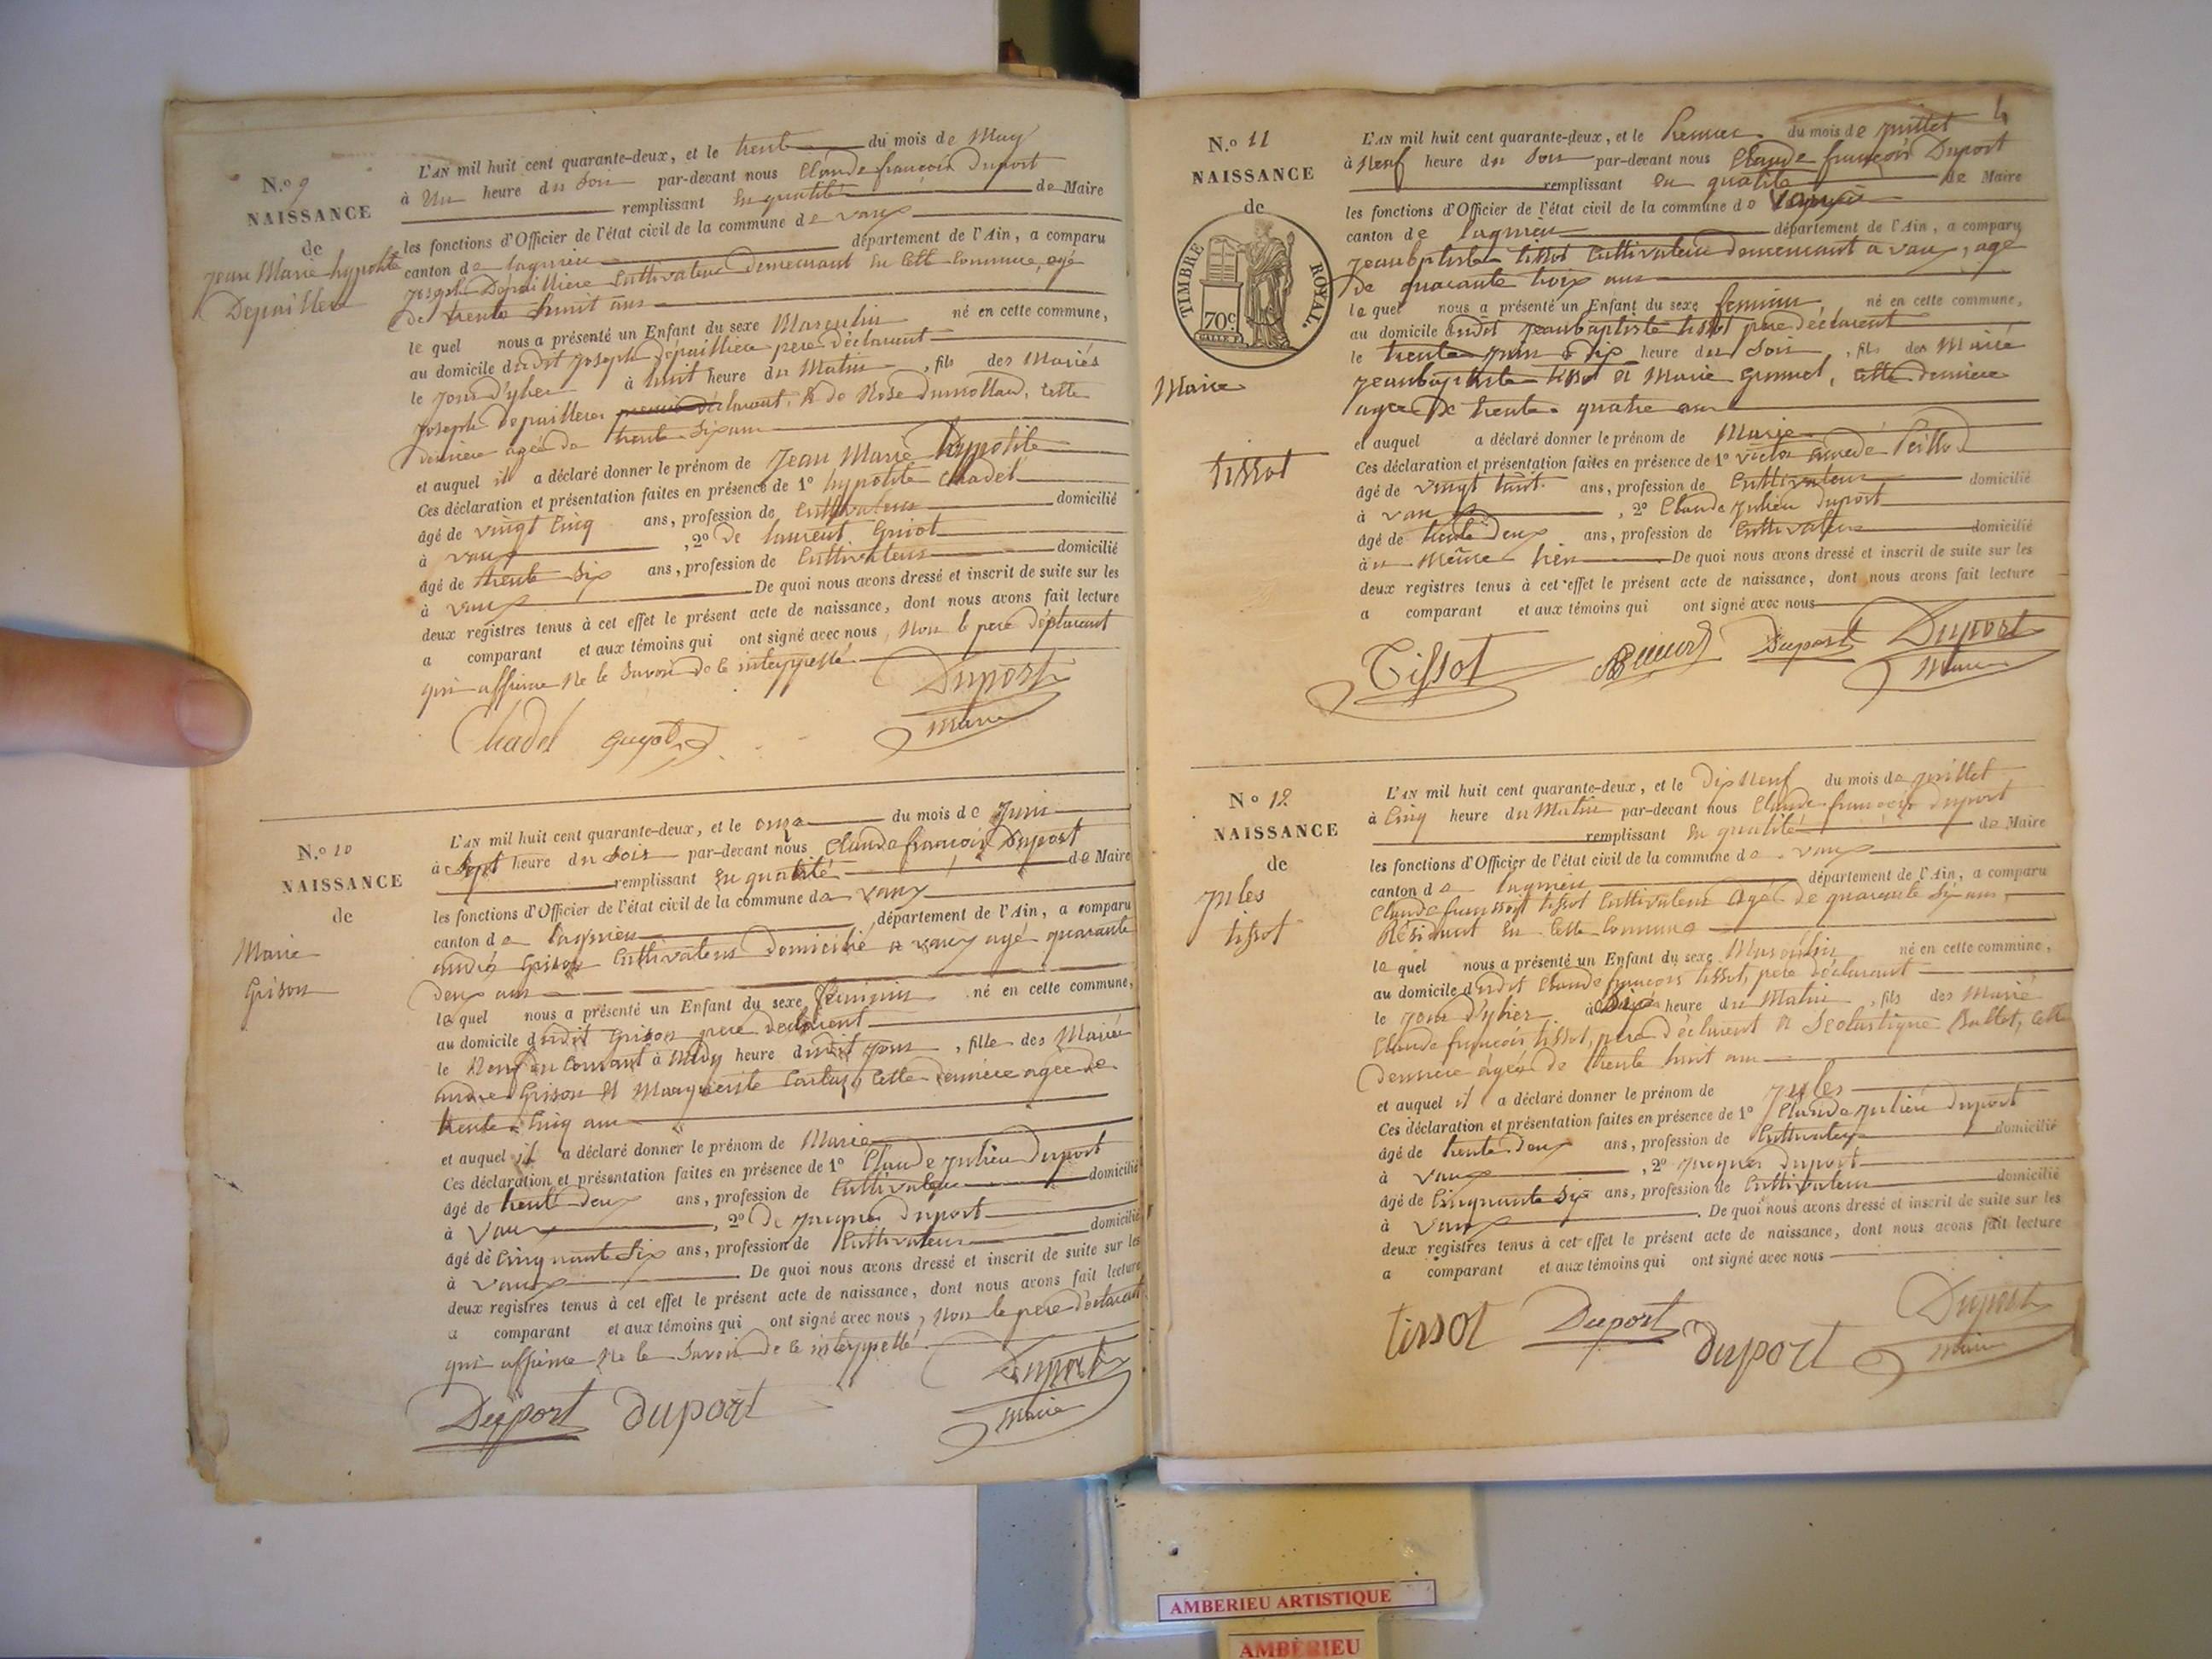 N.o 9
NAISSANCE
de
Jean Marie hypolite
Depaillere
L'AN mil huit cent quarante-deux, et le trente du mois de May
à Un heure du Soir par-devant nous Claude françois Duport
remplissant En qualité de Maire
les fonctions d'Officier de l'état civil de la commune de vaux
canton de lagnieu département de l'Ain, a comparu
Joseph Depalliere Cultivateur Demeurant En Cette Commune, agé
de trente huit ans
le quel nous a présenté un Enfant du sexe Masculin né en cette commune,
au domicile dudit Joseph Depalliere pere Déclarant
le Jour D'yher à huit heure du Matin, fils des Mariés
Joseph Depaillere déclarant, & de Rose Dumollard, Cette
Derniere agée de trente Six ans
et auquel il a déclaré donner le prénom de Jean Marie hypolite
Ces déclaration et présentation faites en présence de 1o hypolite Chadel
âgé de vingt Cinq ans, profession de Cultivateur domicilié
à vaux, 2o De laurent Guiot
âgé de trente Six ans, profession de Cultivateur domicilié
à vaux De quoi nous avons dressé et inscrit de suite sur les
deux registres tenus à cet effet le présent acte de naissance, dont nous avons fait lecture
a comparant et aux témoins qui ont signé avec nous, Non le pere Déclarant
qui affirme Ne le Savoir de le interppellé
Duport
Maire
Chadel Guyot
N.o 10
NAISSANCE
de
Marie
Grison
L'AN mil huit cent quarante-deux, et le onze du mois de Juin
à Sept heure du Soir par-devant nous Claude françois Duport
remplissant En qualité de Maire
les fonctions d'Officier de l'état civil de la commune de vaux
canton de lagnieu département de l'Ain, a comparu
andré Grison Cultivateur Domicilié a vaux agé quarante
Deux ans
le quel nous a présenté un Enfant du sexe féminin né en cette commune,
au domicile dudit Grison pere declarent
le Neuf du Courant à Midy heure dudit Jour, fille des Marié
andré Grison Et Marguerite Cette Derniere agée De
trente Cinq ans
et auquel il a déclaré donner le prénom de Marie
Ces déclaration et présentation faites en présence de 1o Claude Julien Duport
âgé de trente Deux ans, profession de Cultivateur domicilié
à Vaux, 2o De Jacques Duport
âgé de Cinquante Six ans, profession de Cultivateur domicilié
à Vaux De quoi nous avons dressé et inscrit de suite sur les
deux registres tenus à cet effet le présent acte de naissance, dont nous avons fait lecture
a comparant et aux témoins qui ont signé avec nous, Non le pere Déclarant
qui affirme Ne le Savoir De le interppellé
Duport
Maire
Duport duport
4
N.o 11
NAISSANCE
de
TIMBRE ROYAL.
70c
Marie
tissot
L'AN mil huit cent quarante-deux, et le Premier du mois de Juillet
à Neuf heure du Soir par-devant nous Claude françois Duport
remplissant En qualité de Maire
les fonctions d'Officier de l'état civil de la commune de
canton de lagnieu département de l'Ain, a comparu
Jeanbptiste tissot Cultivateur Demeurant a vaux, agé
De quarante trois ans
le quel nous a présenté un Enfant du sexe feminin né en cette commune,
au domicile dudit Jeanbaptiste tissot pere déclarent
le trente Juin à Dix heure du Soir, fil des Marié
Jeanbaptiste tissot et Marie Cette derniere
agée De trente quatre ans
et auquel a déclaré donner le prénom de Marie
Ces déclaration et présentation faites en présence de 1o victor amedé
âgé de vingt huit ans, profession de Cultivateur domicilié
à vaux, 2o Claude Julien Duport
âgé de trente Deux ans, profession de Cultivateur domicilié
à u Même lieu De quoi nous avons dressé et inscrit de suite sur les
deux registres tenus à cet effet le présent acte de naissance, dont nous avons fait lecture
a comparant et aux témoins qui ont signé avec nous
Tissot Duport Duport
Maire
N o 12
NAISSANCE
de
Jules
tissot
L'AN mil huit cent quarante-deux, et le Dix Neuf du mois de Juillet
à Cinq heure du Matin par-devant nous Claude françois Duport
remplissant En qualité de Maire
les fonctions d'Officier de l'état civil de la commune de vaux
canton de lagnieu département de l'Ain, a comparu
Claude franssois tissot Cultivateur agé de quarante Six ans,
Résidant En Cette Commune
le quel nous a présenté un Enfant du sexe Masculin né en cette commune,
au domicile dudit Claude françois tissot, pere déclarant
le Jour D'yher à Dix heure du Matin, fils des Marié
Claude françois tissot, pere déclarent & Scolastique Ballet, Cette
Derniere âgée de trente huit ans
et auquel il a déclaré donner le prénom de Jules
Ces déclaration et présentation faites en présence de 1o Claude Julien Duport
âgé de trente Deux ans, profession de Cultivateur domicilié
à vaux, 2o Jacques Duport
âgé de Cinquante Six ans, profession de Cultivateur domicilié
à Vaux. De quoi nous avons dressé et inscrit de suite sur les
deux registres tenus à cet effet le présent acte de naissance, dont nous avons fait lecture
a comparant et aux témoins qui ont signé avec nous
tissot Duport duport Duport
Maire
AMBERIEU ARTISTIQUE
AMBÈRIEU